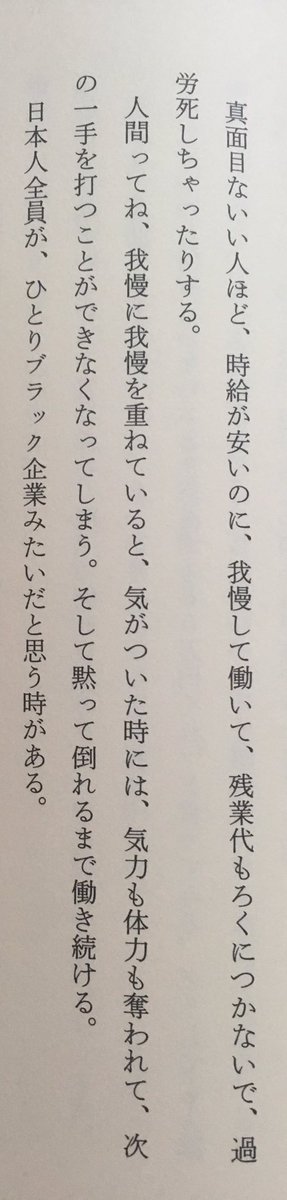 真面目ないい人ほど、時給が安いのに、我慢して働いて、残業代もろくにつかないで、過
労死しちゃったりする。
　人間ってね、我慢に我慢を重ねていると、気がついた時には、気力も体力も奪われて、次
の一手を打つことができなくなってしまう。そして黙って倒れるまで働き続ける。
　日本人全員が、ひとりブラック企業みたいだと思う時がある。